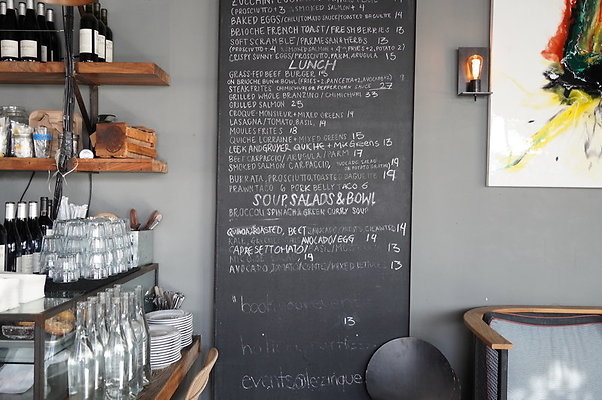 ZUCCHINI
(PROSCIUTTO + 3 SMOKED SALMON + 4
BAKED EGGS/CHILI TOMATO SAUCE/TOASTED BAGUETTE 14
BRIOCHE FRENCH TOAST/FRESH BERRIES 13
SOFT SCRAMBLE/PARMESAN + HERBS 13
(PROSCIUTTO + 4 SMOKED SALMON + 4 FRIES + 2, POTATO 2)
CRISPY SUNNY EGGS/PROSCIUTTO, PARM, ARUGULA 15
LUNCH
GRASS-FED BEEF BURGER 15
ON BRIOCHE BUN OR BOWL (FRIES + 2, PANCETTA + 2, AVOCADO + 2)
STEAK FRITES CHIMICHURRI OR PEPPERCORN SAUCE 27
GRILLED WHOLE BRANZINO/CHIMICHURRI 33
GRILLED SALMON 25
CROQUE-MONSIEUR + MIXED GREENS 13
LASAGNA/TOMATO, BASIL 14
MOULES FRITES 18
QUICHE LORRAINE + MIXED GREENS 15
LEEK AND GRUYER QUICHE + MIX GREENS 13
BEEF CARPACCIO/ARUGULA/PARM 17
SMOKED SALMON CARPACCIO, AVOCADO SALAD OR POTATO GRATIN 19
BURRATA, PROSCIUTTO, TOASTED BAGUETTE 19
PRAWN TACO 6 PORK BELLY TACO 6
SOUP SALADS & BOWL
BROCCOLI SPINACH & GREEN CURRY SOUP
QUINOA: ROASTED, BEET, AVOCADO CILANTRO 14
KALE AVOCADO/EGG 14
CAPRESE TOMATO/ 13
19
AVOCADO TOMATO MIXED LETTUCE 13
"book your event
13
events@lezinque